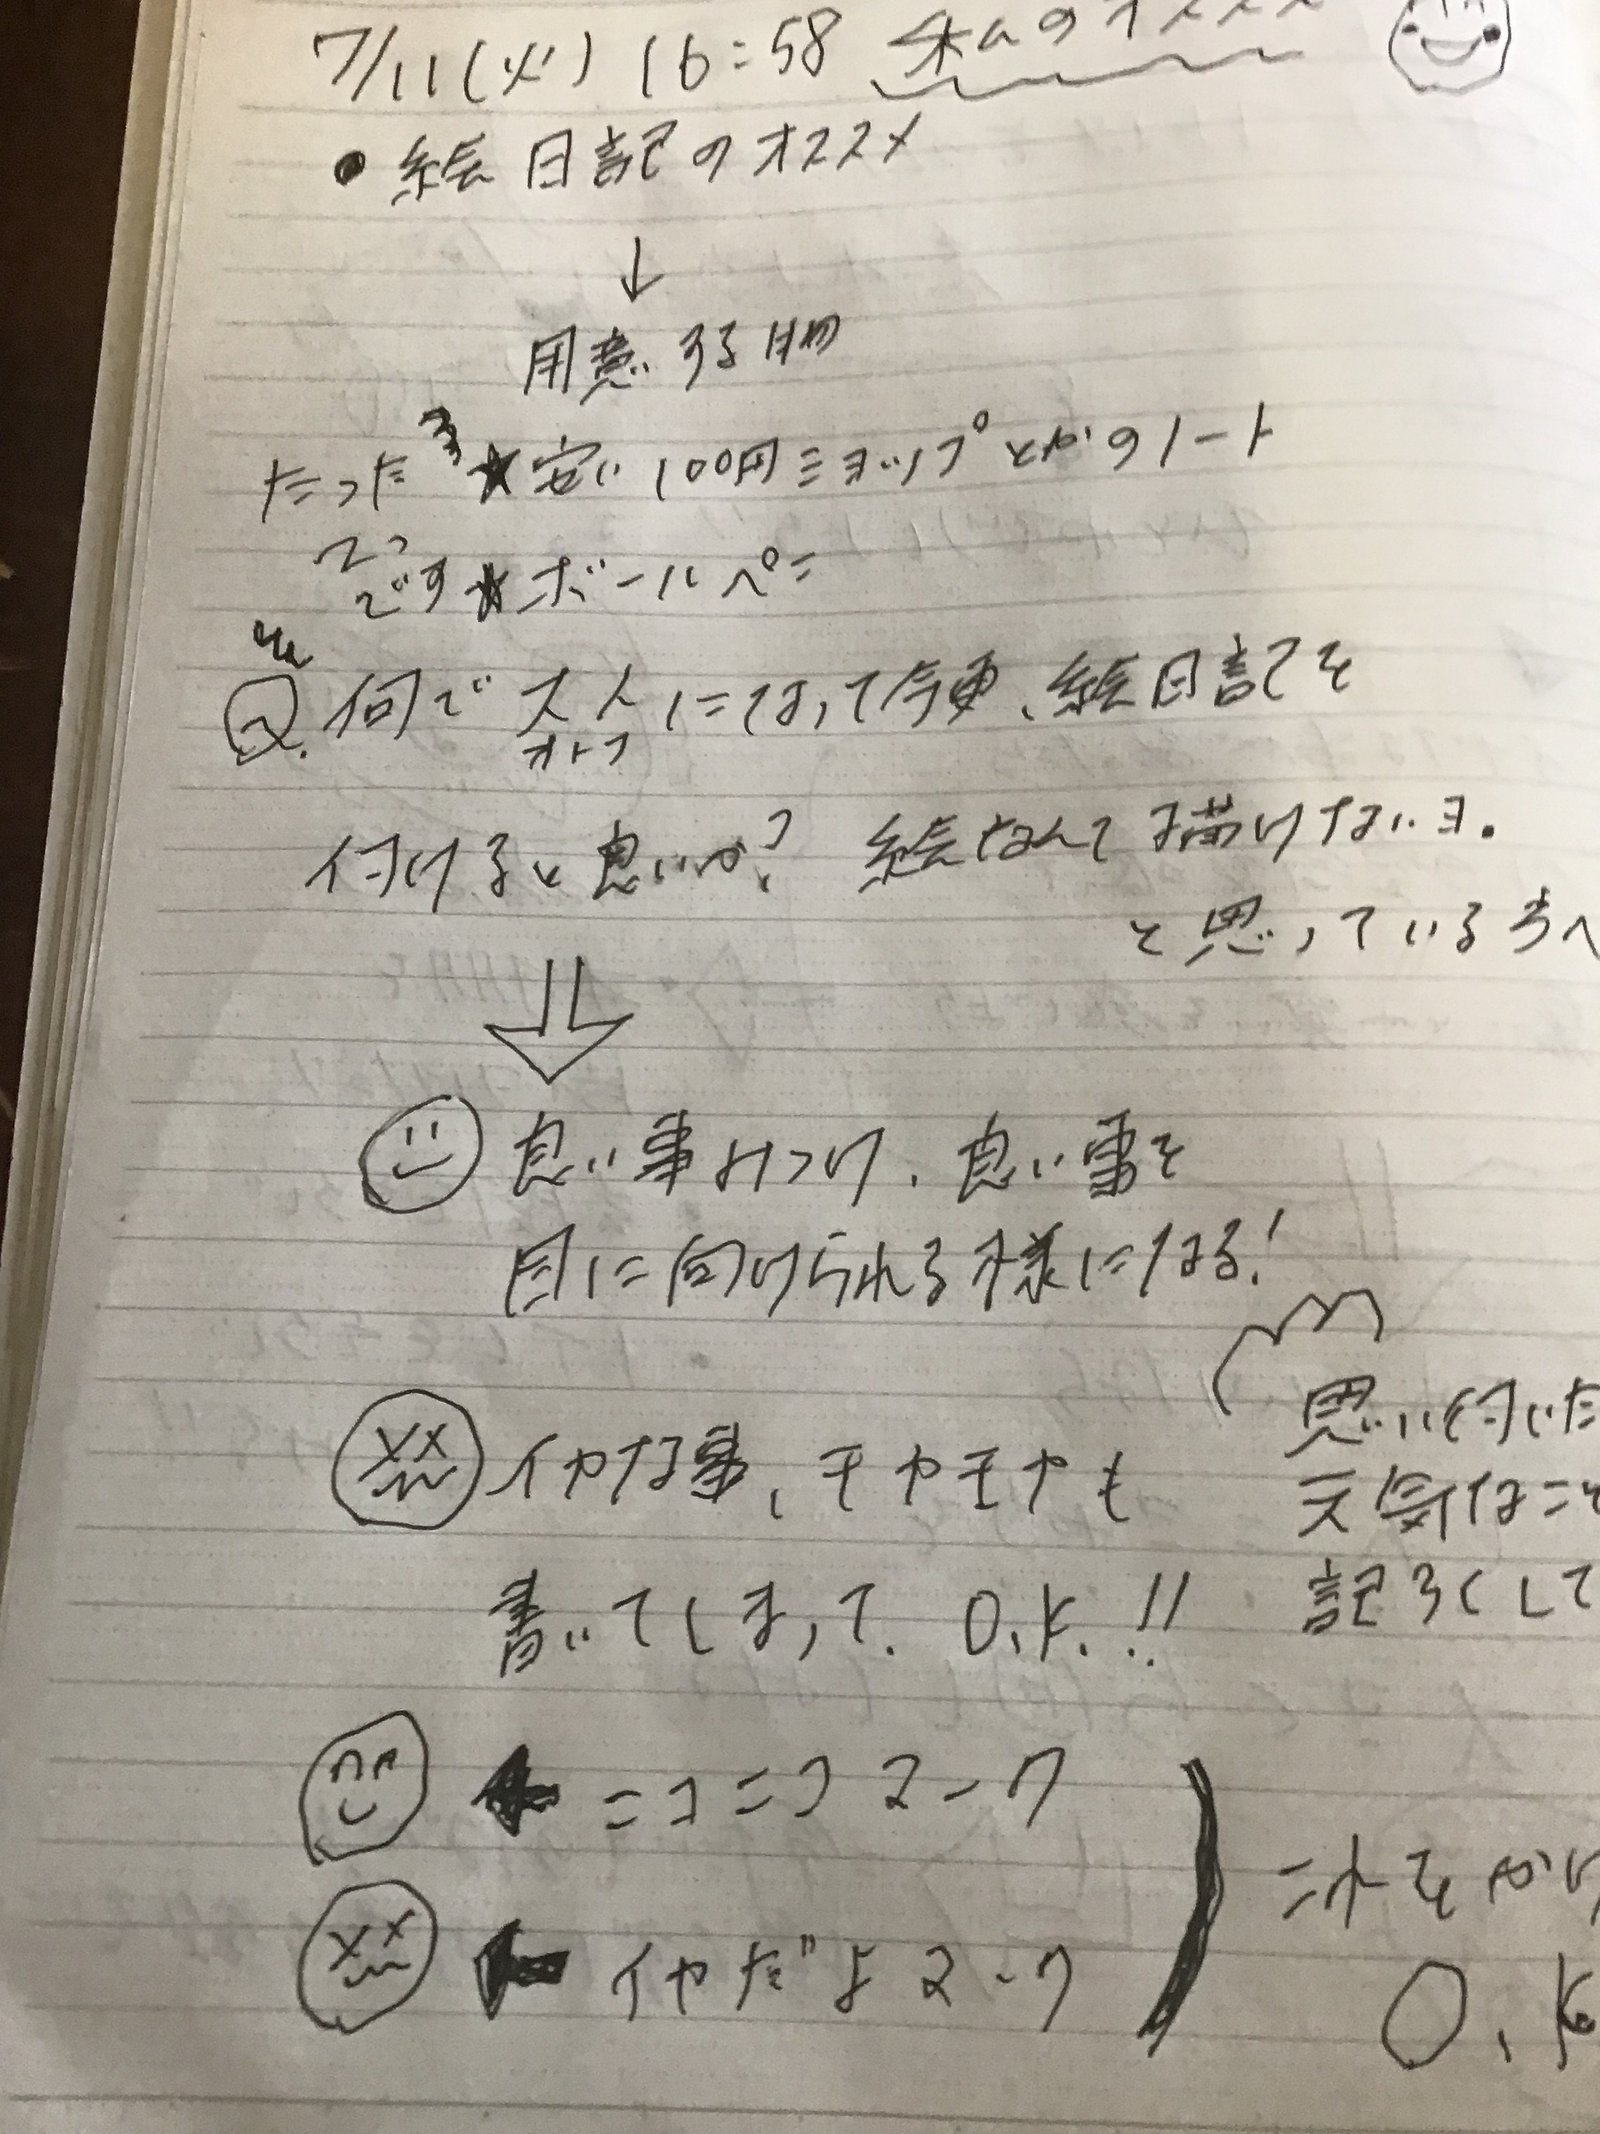 7/11(火) 16:58 私のオススメ
● 絵日記のオススメ
↓
用意する物
たった ★安い100円ショップとかのノート
2つ
です ★ボールペン
Q. 何で大人になって今更、絵日記を
オトナ
付けると良いか? 絵なんて描けないヨ.
と思っている方へ
良い事みつけ、良い事を
目に向けられる様になる!
イヤな事、モヤモヤも
書いてしまって. O.K.!!
思い付いた
元気なこと
記ろくして
← ニコニコマーク
← イヤだよマーク
これをかけ
O.K